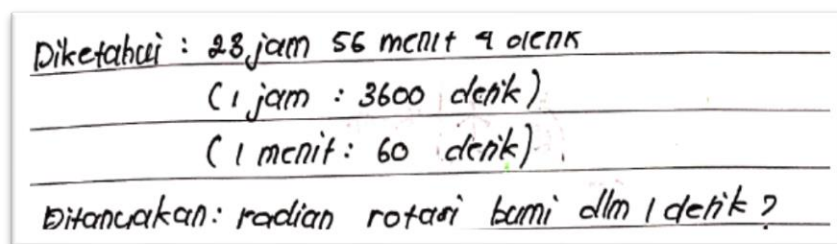 Diketahui : 23 jam 56 menit 4 detik
(1 jam : 3600 detik)
(1 menit : 60 detik).
Ditanyakan: radian rotasi bumi dlm 1 detik ?